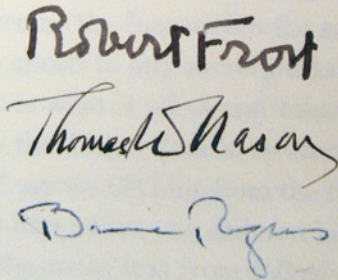 Robert Frost
Thomas W Nason
Bruce Rogers